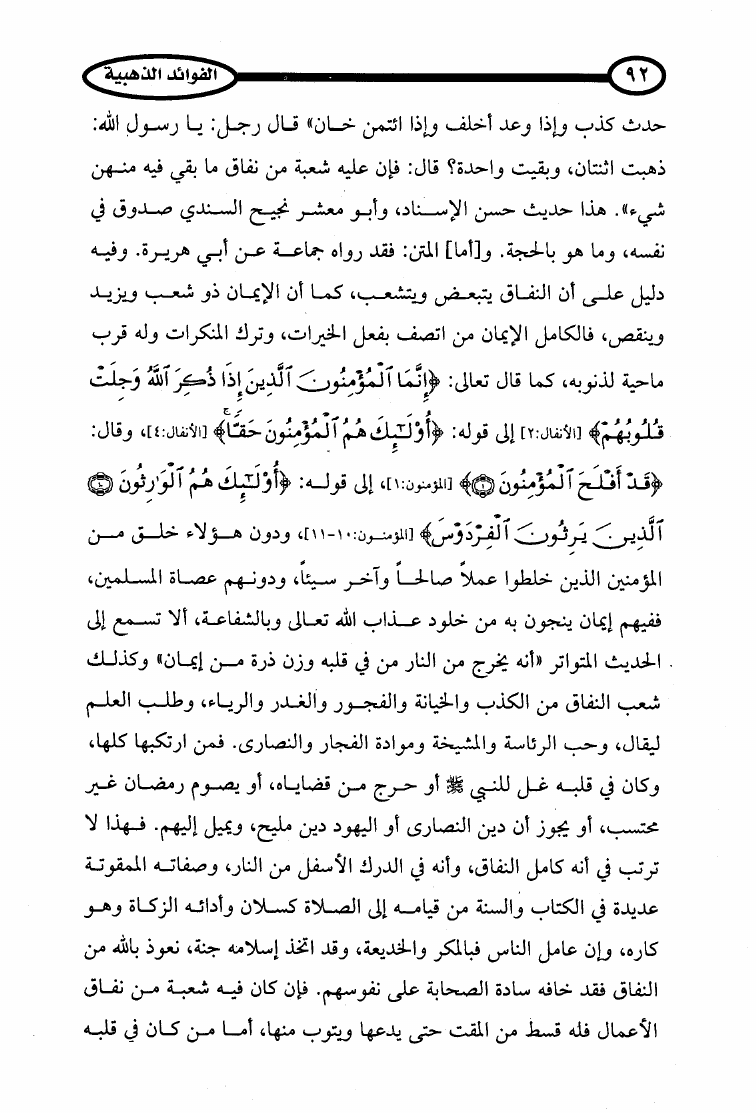 ٩٢ الفوائد الذهبية
حدث كذب وإذا وعد أخلف وإذا ائتمن خان» قال رجل: يا رسول الله:
ذهبت اثنتان، وبقيت واحدة؟ قال: فإن عليه شعبة من نفاق ما بقي فيه منهن
شيء». هذا حديث حسن الإسناد، وأبو معشر نجيح السندي صدوق في
نفسه، وما هو بالحجة. و[أما] المتن: فقد رواه جماعة عن أبي هريرة. وفيه
دليل على أن النفاق يتبعض ويتشعب، كما أن الإيمان ذو شعب ويزيد
وينقص، فالكامل الإيمان من اتصف بفعل الخيرات، وترك المنكرات وله قرب
ماحية لذنوبه، كما قال تعالى: ﴿إِنَّمَا ٱلْمُؤْمِنُونَ ٱلَّذِينَ إِذَا ذُكِرَ ٱللَّهُ وَجِلَتْ
قُلُوبُهُمْ﴾ [الأنفال:٢] إلى قوله: ﴿أُوْلَـٰٓئِكَ هُمُ ٱلْمُؤْمِنُونَ حَقًّا ۚ﴾ [الأنفال:٤]، وقال:
﴿قَدْ أَفْلَحَ ٱلْمُؤْمِنُونَ ۝١﴾ [المؤمنون:١]، إلى قوله: ﴿أُوْلَـٰٓئِكَ هُمُ ٱلْوَٰرِثُونَ ۝
ٱلَّذِينَ يَرِثُونَ ٱلْفِرْدَوْسَ﴾ [المؤمنون:١٠-١١]، ودون هؤلاء خلق من
المؤمنين الذين خلطوا عملاً صالحاً وآخر سيئاً، ودونهم عصاة المسلمين،
ففيهم إيمان ينجون به من خلود عذاب الله تعالى وبالشفاعة، ألا تسمع إلى
الحديث المتواتر «أنه يخرج من النار من في قلبه وزن ذرة من إيمان» وكذلك
شعب النفاق من الكذب والخيانة والفجور والغدر والرياء، وطلب العلم
ليقال، وحب الرئاسة والمشيخة وموادة الفجار والنصارى. فمن ارتكبها كلها،
وكان في قلبه غل للنبي ﷺ أو حرج من قضاياه، أو يصوم رمضان غير
محتسب، أو يجوز أن دين النصارى أو اليهود دين مليح، ويميل إليهم. فهذا لا
ترتب في أنه كامل النفاق، وأنه في الدرك الأسفل من النار، وصفاته الممقوتة
عديدة في الكتاب والسنة من قيامه إلى الصلاة كسلان وأدائه الزكاة وهو
كاره، وإن عامل الناس فبالمكر والخديعة، وقد اتخذ إسلامه جنة، نعوذ بالله من
النفاق فقد خافه سادة الصحابة على نفوسهم. فإن كان فيه شعبة من نفاق
الأعمال فله قسط من المقت حتى يدعها ويتوب منها، أما من كان في قلبه